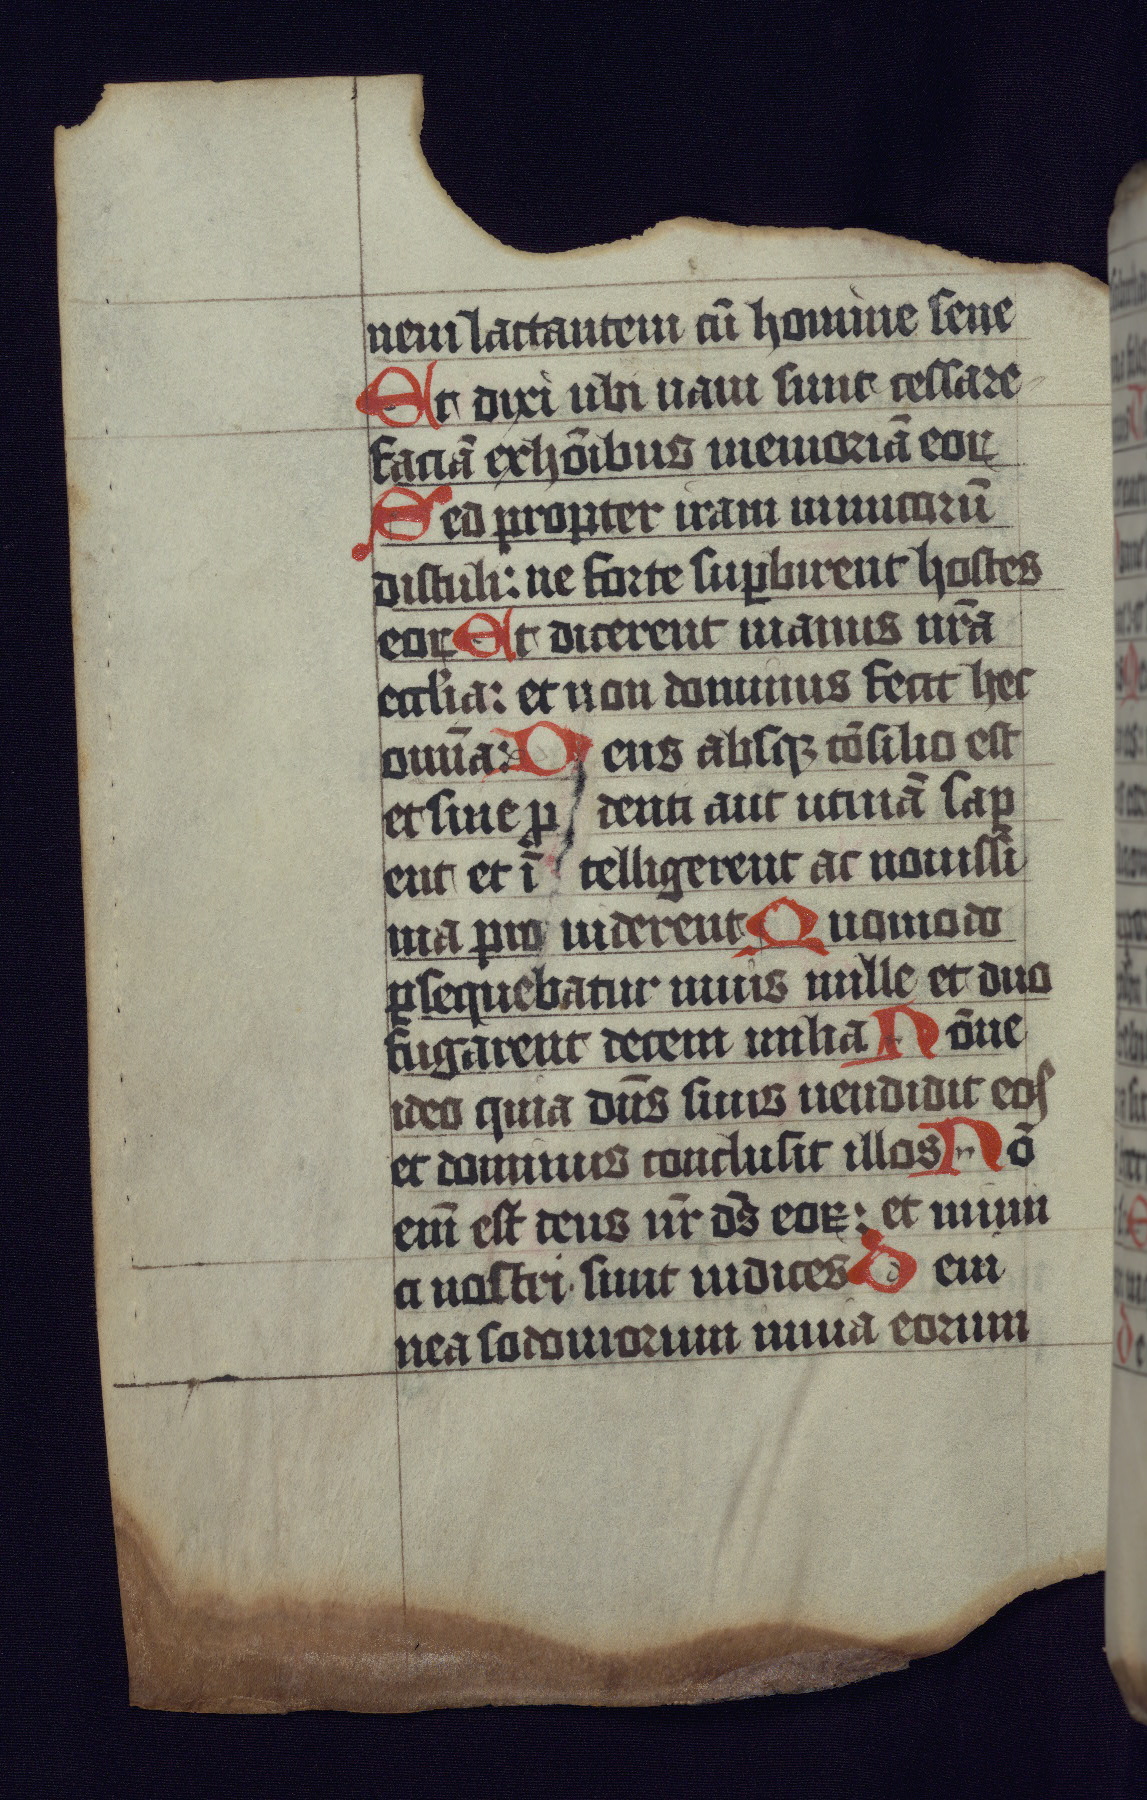 nem lactantem cū homine sene
Et dixi ubi nam sunt cessare
faciā ex hōibus memoriā eoꝝ
Sed propter iram inimicorū
distuli: ne forte suꝑbirent hostes
eoꝝ Et dicerent manus nr̄a
excelsa: et non dominus fecit hec
omnia: Gens absqꝫ cōsilio est
et sine ꝓ denti aut utinā sap
ent et ī telligerent ac nouissi
ma pro uiderent Quomodo
ꝑsequebatur unus mille et duo
fugarent decem milia Nōne
ideo quia dn̄s suus uendidit eos
et dominus conclusit illos Nō
enī est deus nr̄ ds̄ eoꝝ: et inimi
ci nostri sunt iudices De ui
nea sodomorum uinea eorum